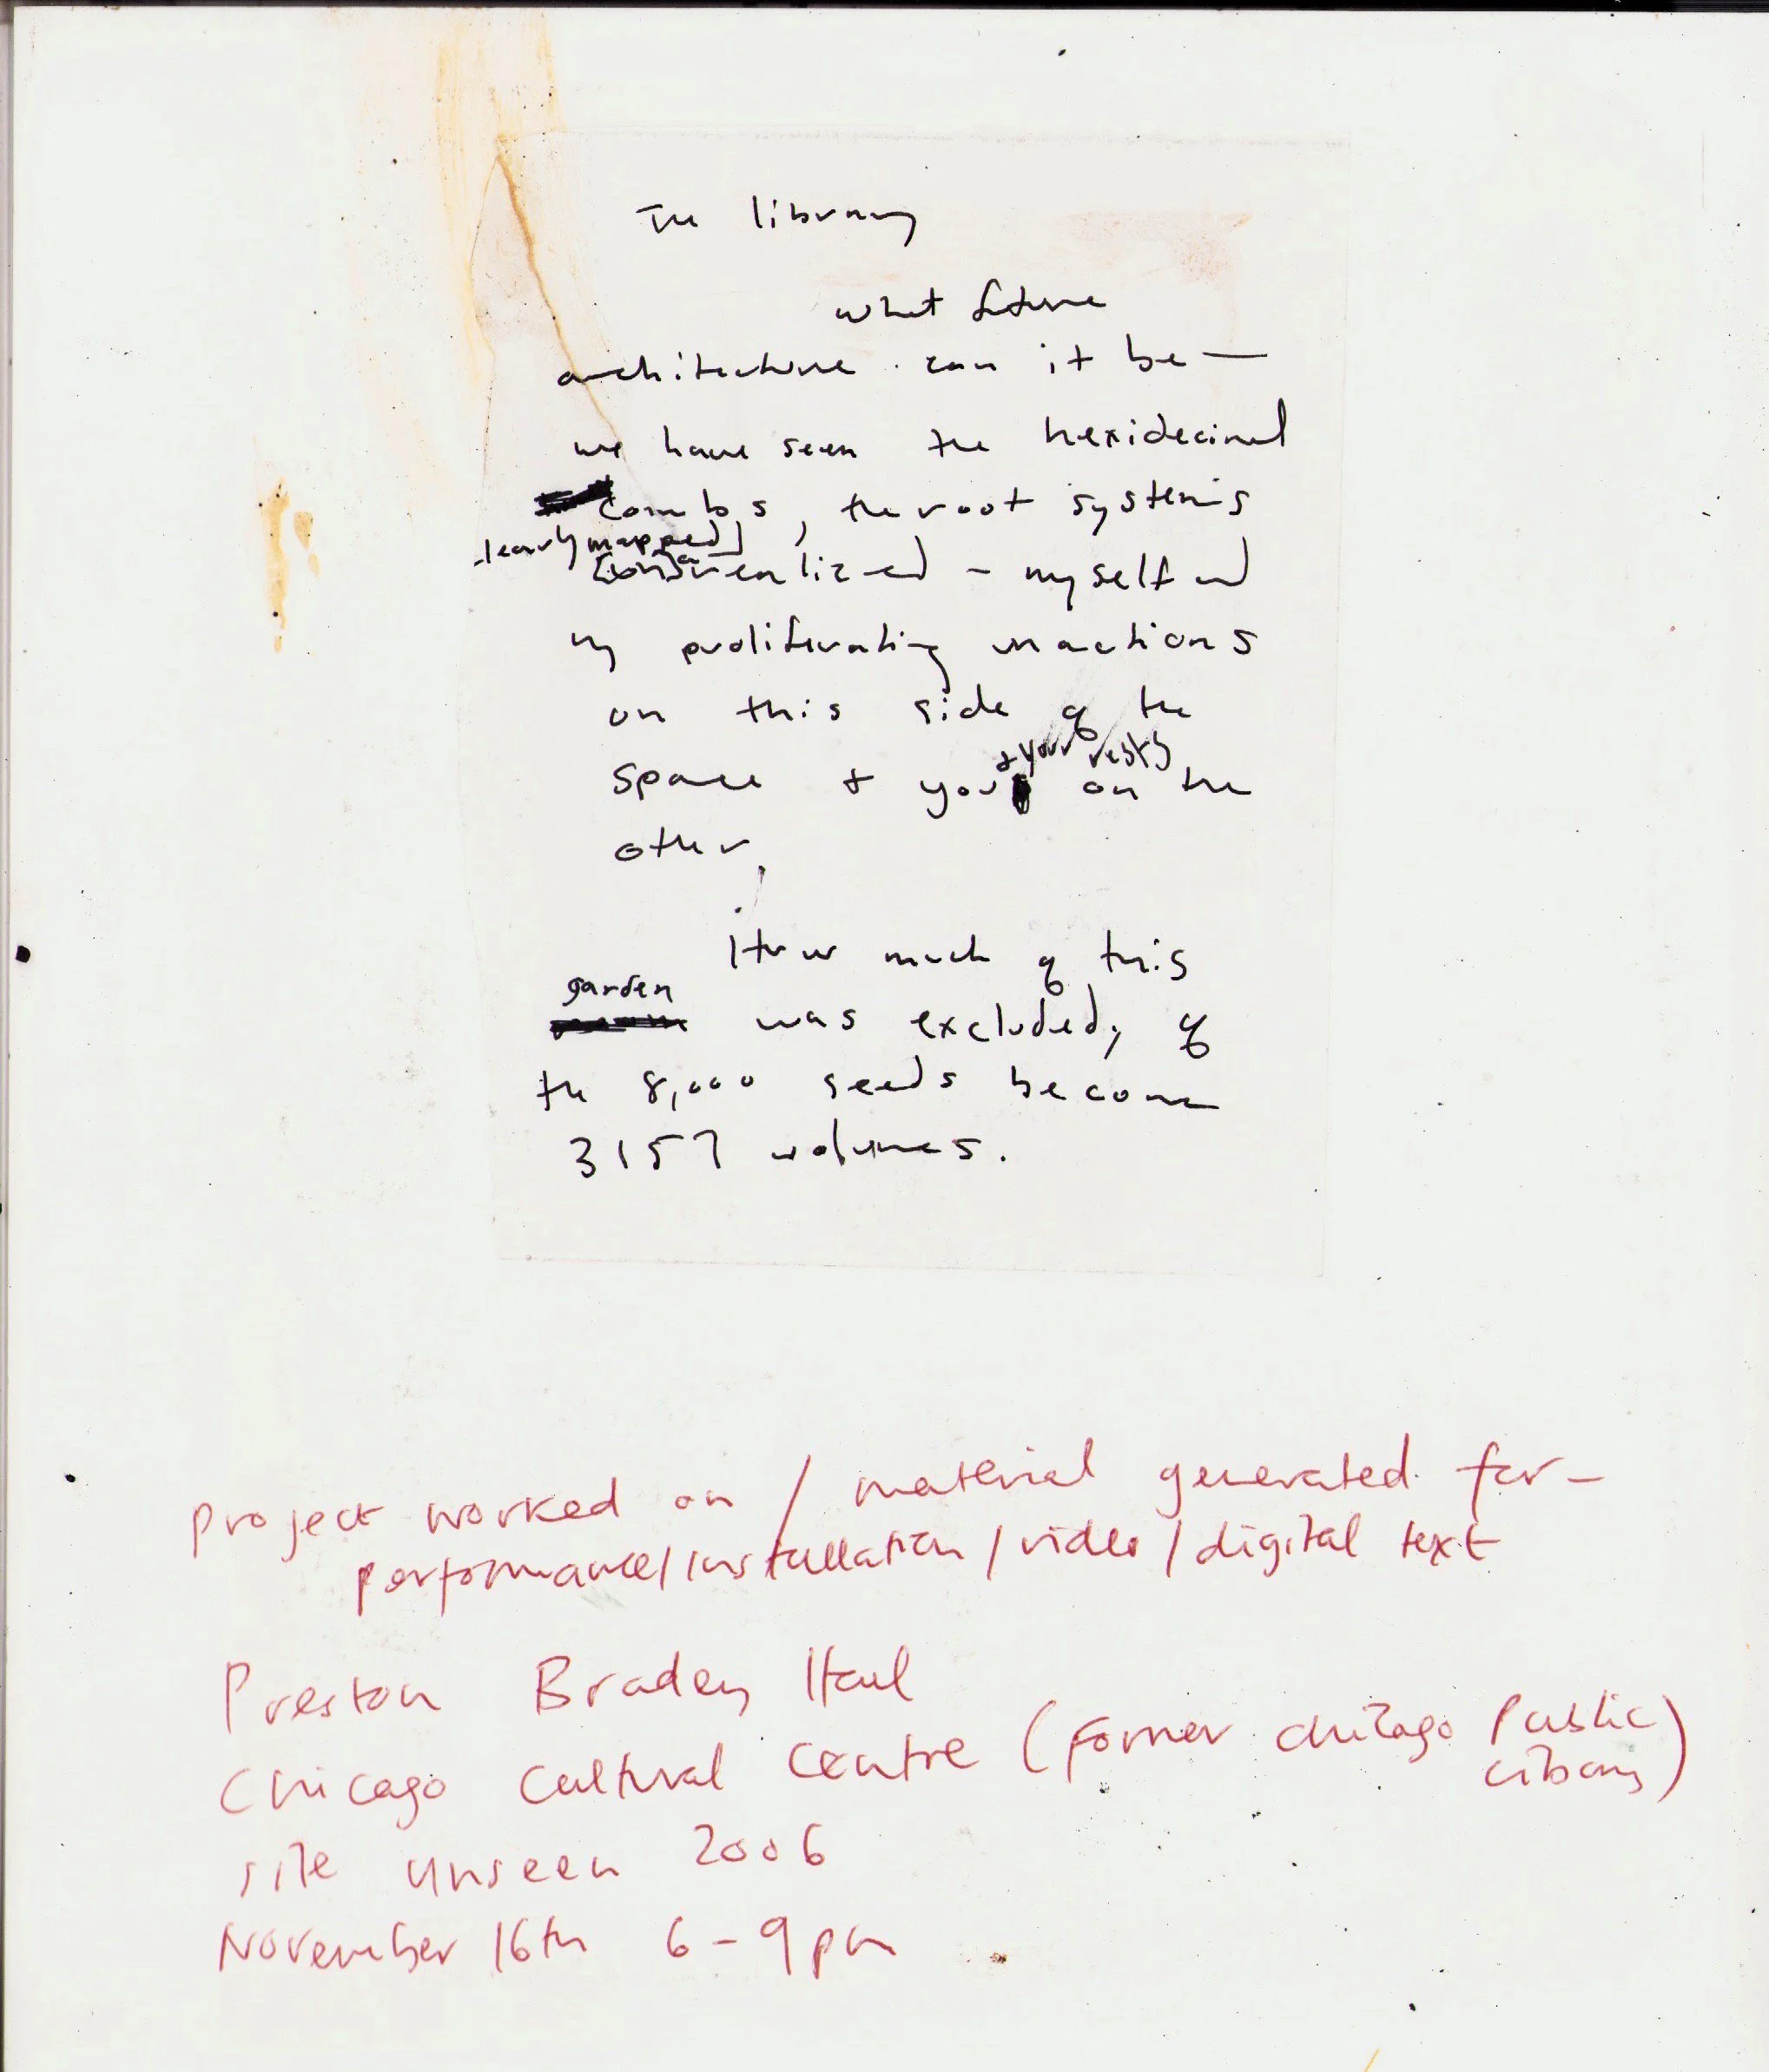 The library
what future
architecture can it be —
we have seen the hexidecimal
combs, the root systems
mapped]
- myself and
my proliferating inactions
on this side of the
& your
space & you on the
other,
How much of this
garden
was excluded, of
the 8,000 seeds become
3157 volumes.
project worked on / material generated for -
performance/installation / video / digital text
Preston Bradley Hall
Chicago Cultural Centre (Former Chicago Public
Library)
Site Unseen 2006
November 16th 6 - 9pm